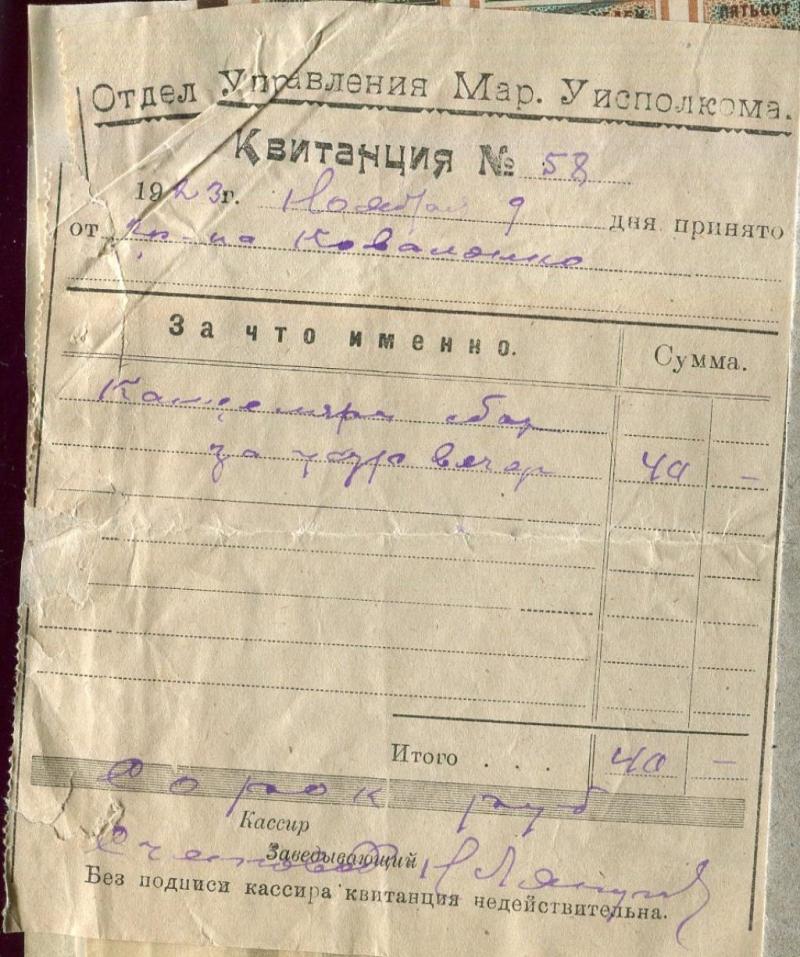 ПЯТЬСОТ
Отдел Управления Мар. Уисполкома.
Квитанция № 58
1923г. Ноября 9 дня принято
от гр-на Коваленко
За что именно. Сумма.
Канцеляр сбор
за вечер 40 -
Итого . . . 40 -
Сорок руб
Кассир
Заведывающий
Без подписи кассира квитанция недействительна.